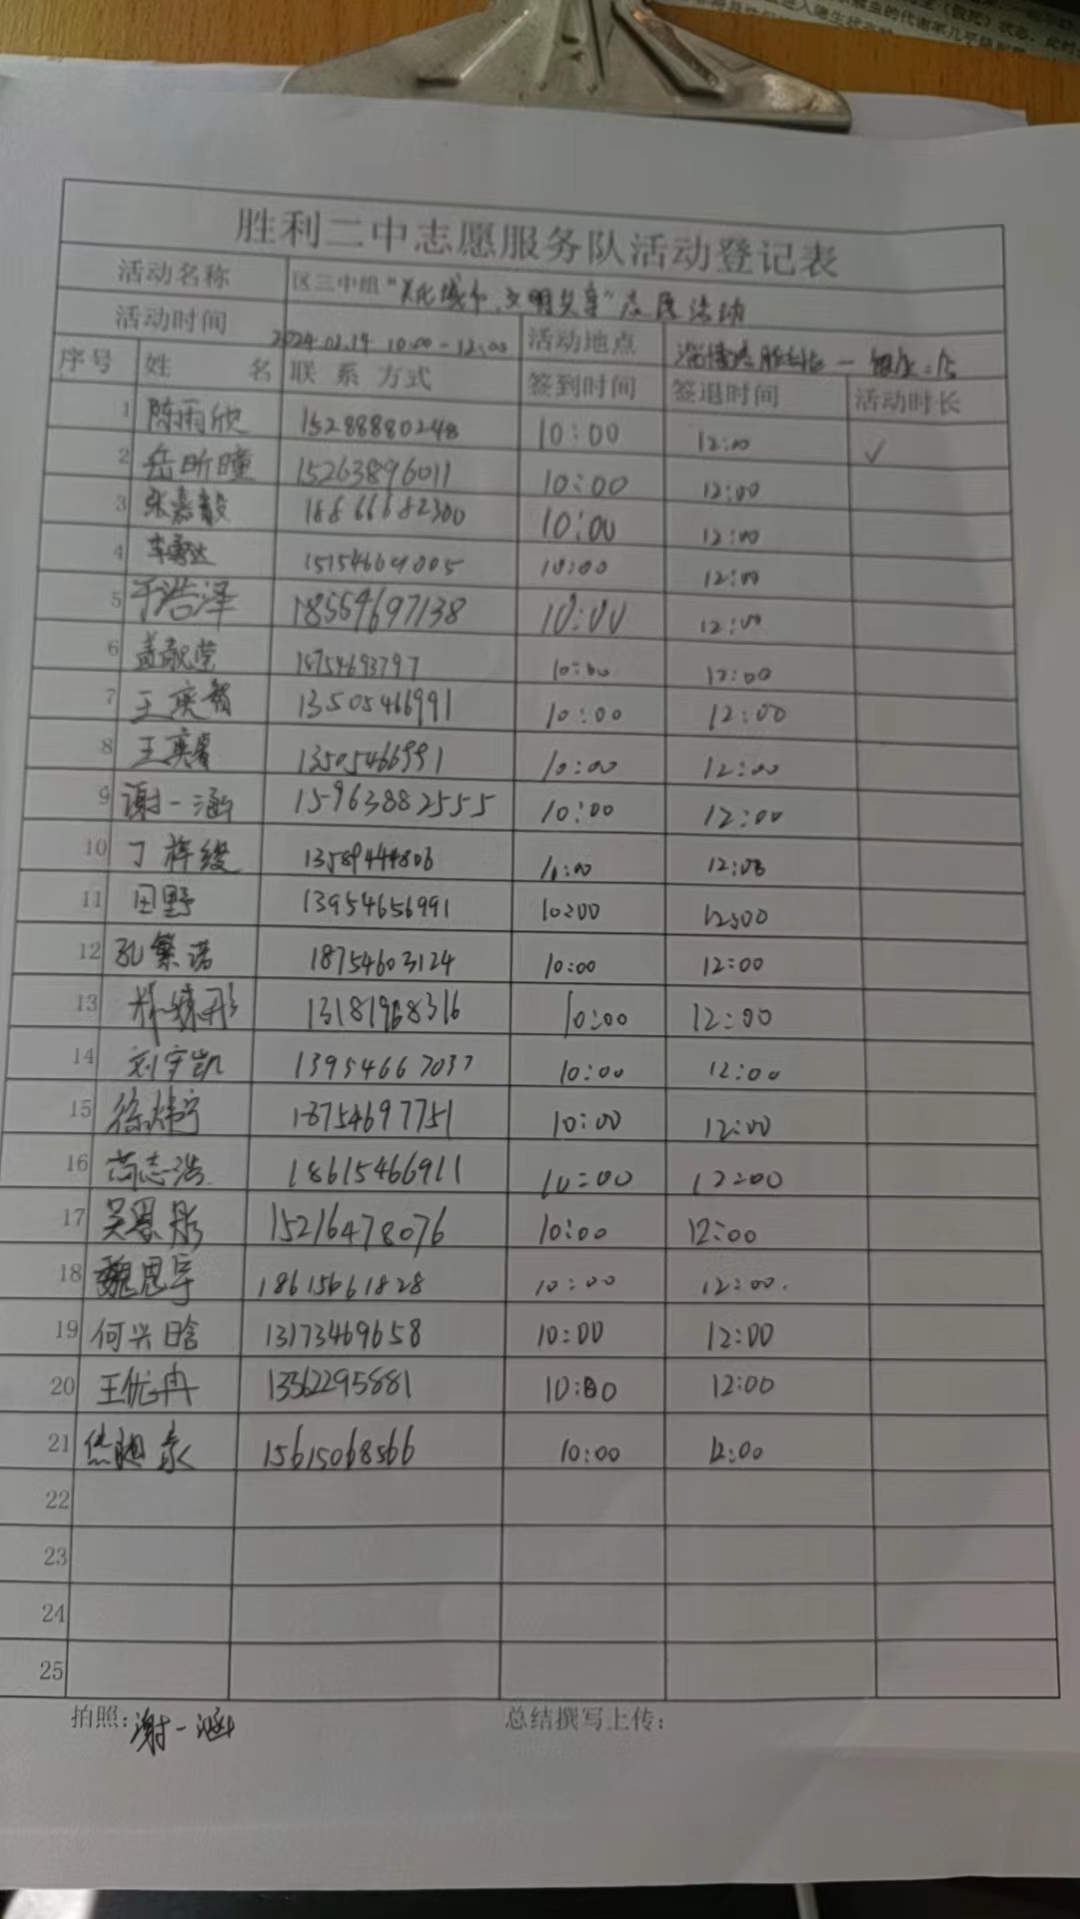 胜利二中志愿服务队活动登记表
活动名称 区三中组"美化城市,文明共享"志愿活动
活动时间 2024.02.14 10:00-12:00 活动地点
序号 姓 名 联系方式 签到时间 签退时间 活动时长
1 陈雨欣 15288880248 10:00 12:00 ✓
2 岳昕瞳 15263896011 10:00 12:00
3 张嘉毅 18666682300 10:00 12:00
4 15154669005 10:00 12:00
5 于浩泽 18554697138 10:00 12:00
6 15754693797 10:00 12:00
7 王奕智 13505466991 10:00 12:00
8 13505466991 10:00 12:00
9 谢一涵 15963882555 10:00 12:00
10 丁梓缦 13589444806 10:00 12:00
11 田野 13954656991 10:00 12:00
12 孔繁诺 18754603124 10:00 12:00
13 13181968316 10:00 12:00
14 刘宇凯 13954667037 10:00 12:00
15 徐炜宁 18754697751 10:00 12:00
16 尚志浩 18615466911 10:00 12:00
17 吴恩彤 15216478076 10:00 12:00
18 魏思宇 18615661828 10:00 12:00.
19 何兴晗 13173469658 10:00 12:00
20 王优冉 13562295881 10:00 12:00
21 15615068566 10:00 12:00
22
23
24
25
拍照:谢一涵 总结撰写上传: